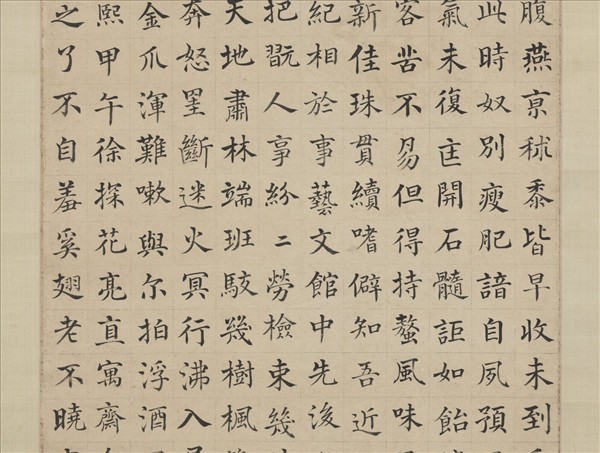 腹燕京秫黍皆早收未到
此時奴別瘦肥諳自夙預
氣未復匡開石髓詎如飴
容苦不易但得持螯風味
新佳珠貫續嗜僻知吾近
紀相於事藝文館中先後
把翫人事紛二勞檢束幾
天地肅林端班駁幾樹楓
奔怒星斷迷火冥行沸入
金爪渾難嗽與尔拍浮酒
熙甲午徐探花亮直寓齋
之了不自羞奚翅老不曉